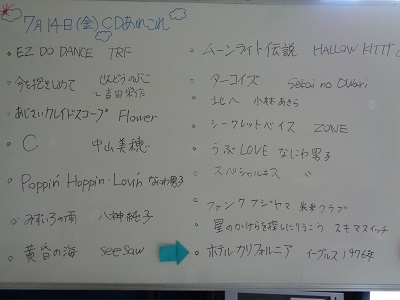 7月14日(金)CDあれこれ
・EZ DO DANCE TRF
・今を抱きしめて
と吉田栄作
・あじさいカレイドスコープ Flower
・C 中山美穂
・Poppin' Hoppin' Lovin' なにわ男子
・みずいろの雨 八神純子
・黄昏の海 see saw
・ムーンライト伝説 HALLOW KITTY
・ターコイズ Sekai no Owari
・北へ 小林あきら
・シークレットベイス ZONE
・うぶLOVE なにわ男子
・スペシャルキス 〃
・ファンク フジヤマ 米米クラブ
・星のかけらを探しに行こう スキマスイッチ
・ホテルカリフォルニア イーグルス1976年